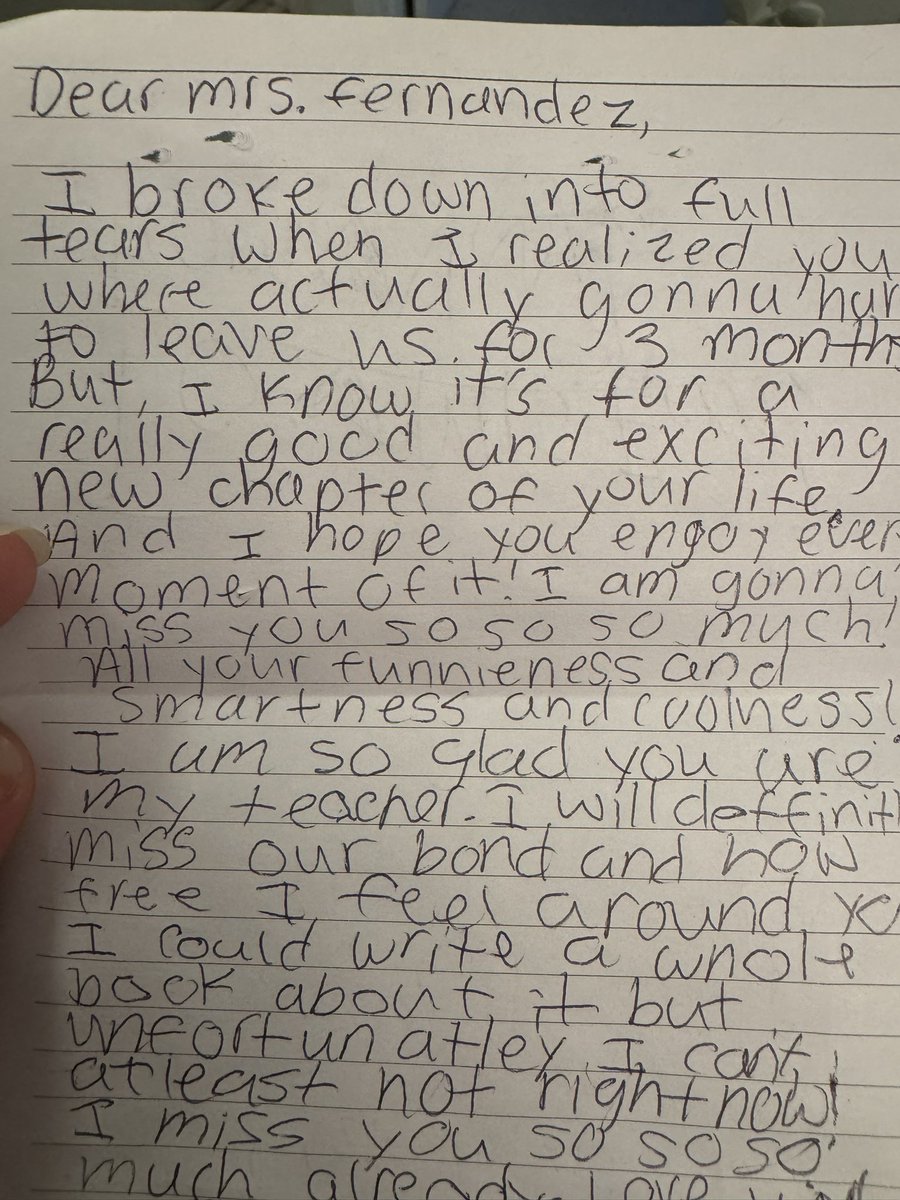 Dear mrs. fernandez,
I broke down into full
tears when I realized you
where actually gonna
to leave us. for 3 months
But, I know it's for a
really good and exciting
new chapter of your life.
And I hope you engoy ever
moment of it! I am gonna
miss you so so so much!
All your funnieness and
smartness and coolness!
I am so glad you are
my teacher. I will deffinit
miss our bond and how
free I feel around yo
I could write a whole
book about it but
unfortunatley I can't,
atleast not right now!
I miss you so so so
much already. Love